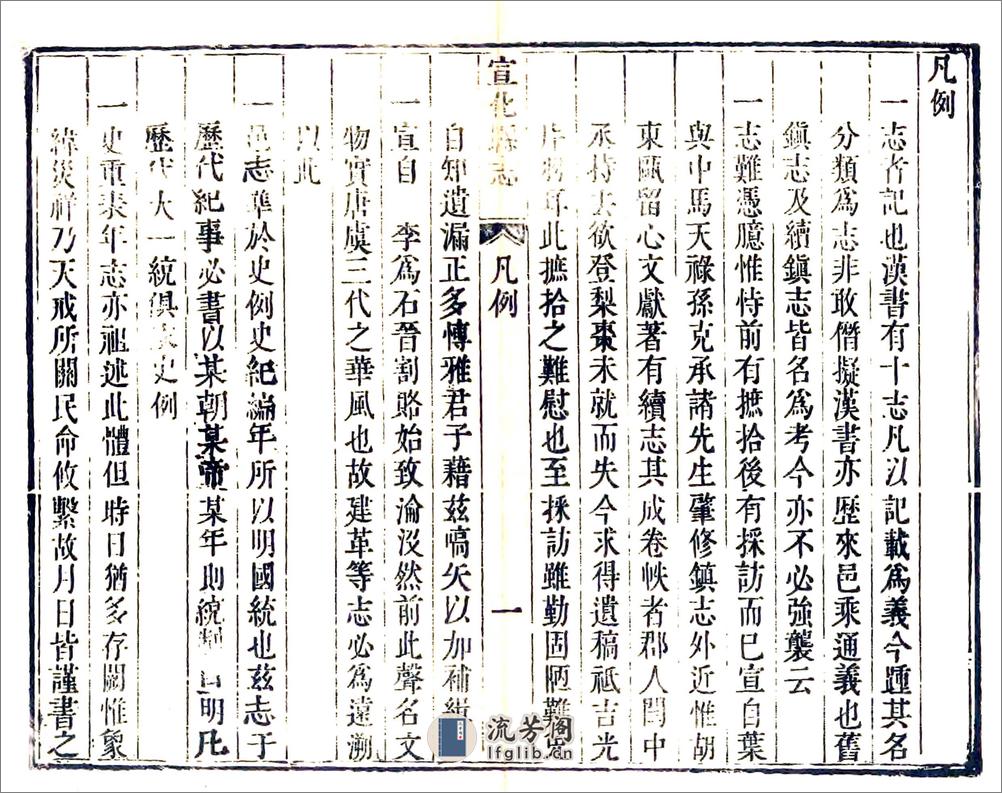 凡例
一志者記也漢書有十志凡以記載爲義今踵其名
分類爲志非敢僭擬漢書亦歷來邑乘通義也舊
鎭志及續鎭志皆名爲考今亦不必強襲云
一志難憑臆惟恃前有摭拾後有採訪而已宣自葉
與中馬天祿孫克承諸先生肇修鎭志外近惟胡
東甌留心文獻著有續志其成卷帙者郡人閆中
承持去欲登梨棗未就而失今求得遺稿祗吉光
片羽耳此摭拾之難慰也至採訪雖勤固陋難免
宣化縣志
凡例
一
自知遺漏正多愽雅君子藉茲嚆矢以加補緝
一宣自 李爲石晉割賂始致淪沒然前此聲名文
物實唐虞三代之華風也故建革等志必爲遠溯
以此
一邑志準於史例史紀編年所以明國統也茲志于
歷代紀事必書以某朝某帝某年則統 自明凡
歷代大一統俱 史例
一史重表年志亦祖述此體但時日猶多存闕惟象
緯災祥乃天戒所關民命攸繫故月日皆謹書之
流芳閣
lfglib.cn